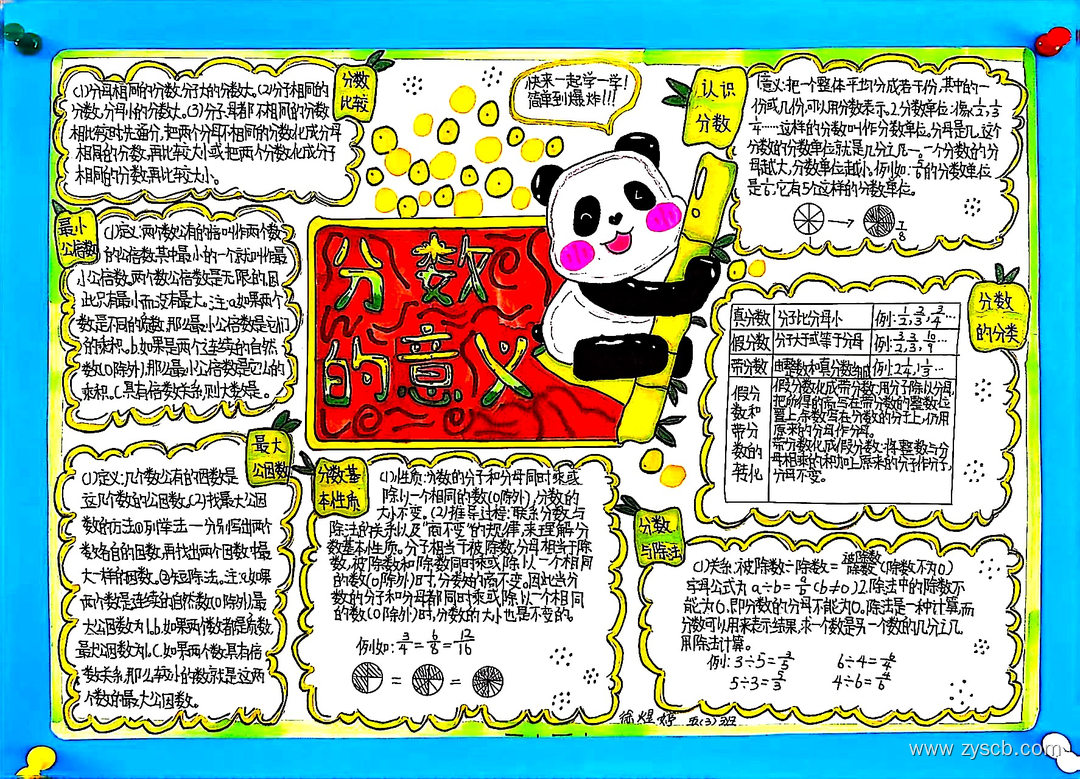 分数
比较
(1)分母相同的分数,分子大的分数大。(2)分子相同的
分数,分母小的分数大。(3)分子、母都不相同的分数
相比较时,先通分,把两个分母不相同的分数化成分母
相同的分数,再比较大小或把两个分数化成分子
相同的分数,再比较大小。
快来一起学一学!
简单到爆炸!!!
认识
分数
1.意义:把一个整体平均分成若干份,其中的一
份或几份,可以用分数表示。2.分数单位:像1/2,1/3
1/4……这样的分数叫作分数单位。分母是几,这个
分数的分数单位就是几分之一。一个分数的分
母越大,分数单位越小。例如:5/6的分数单位
是1/6,它有5个这样的分数单位。
1/8
最小
公倍数
(1)定义:两个数公有的倍叫作两个数
的公倍数,其中最小的一个就叫作最
小公倍数。两个数公倍数是无限的,因
此只有最小而没有最大。注:a.如果两个
数是不同的质数,那么最小公倍数是它们
的乘积。b.如果是两个连续的自然
数(0除外),那么最小公倍数是它么的
乘积。C.具有倍数关系,则大数是。
分数
的意义
分数
的分类
真分数 分子比分母小 例:1/2,2/3,3/4…
假分数 分子大于或等于分母 例:3/2,3/3,10/9…
带分数 由整数和真分数组成 例:2 1/4,1 1/5…
假分
数和
带分
数的
转化
假分数化成带分数:用分子除以分母,
把所得的商写在带分数的整数位
置上,余数写在分数的分子上,仍用
原来的分母作分母。
带分数化成假分数:将整数与分
母相乘的和加上原来的分子作分子,
分母不变。
最大
公因数
(1)定义:几个数公有的因数是
这几个数的公因数。(2)找最大公因
数的方法:①列举法——分别写出两个
数各自的因数,再找出两个因数中最
大一样的因数。②短除法。注:a.如果
两个数是连续的自然数(0除外),最
大公因数为1.b.如果两个数都是质数,
最大公因数为1.C.如果两个数具有倍
数关系,那么较小的数就是这两
个数的最大公因数。
分数基
本性质
(1)性质:分数的分子和分母同时乘或
除以一个相同的数(0除外),分数的
大小不变。(2)推导过程:联系分数与
除法的关系以及“商不变”的规律,来理解分
数基本性质。分子相当于被除数,分母相当于除
数,被除数和除数同时乘或除以一个相同
的数(0除外)时,分数的商不变。因此当分
数的分子和分母都同时乘或除以一个相同
的数(0除外)时,分数的大小也是不变的。
例如:3/4=6/8=12/16
= =
分数
与除法
(1)关系:被除数÷除数=被除数/除数(除数不为0)
字母公式为a÷b=a/b(b≠0)2.除法中的除数不
能为0,即分数的分母不能为0。除法是一种计算,而
分数可以用来表示结果,求一个数是另一个数的几分之几,
用除法计算。
例:3÷5=3/5 6÷4=6/4
5÷3=5/3 4÷6=4/6
徐煜婷 五(3)班
www.zyscb.com